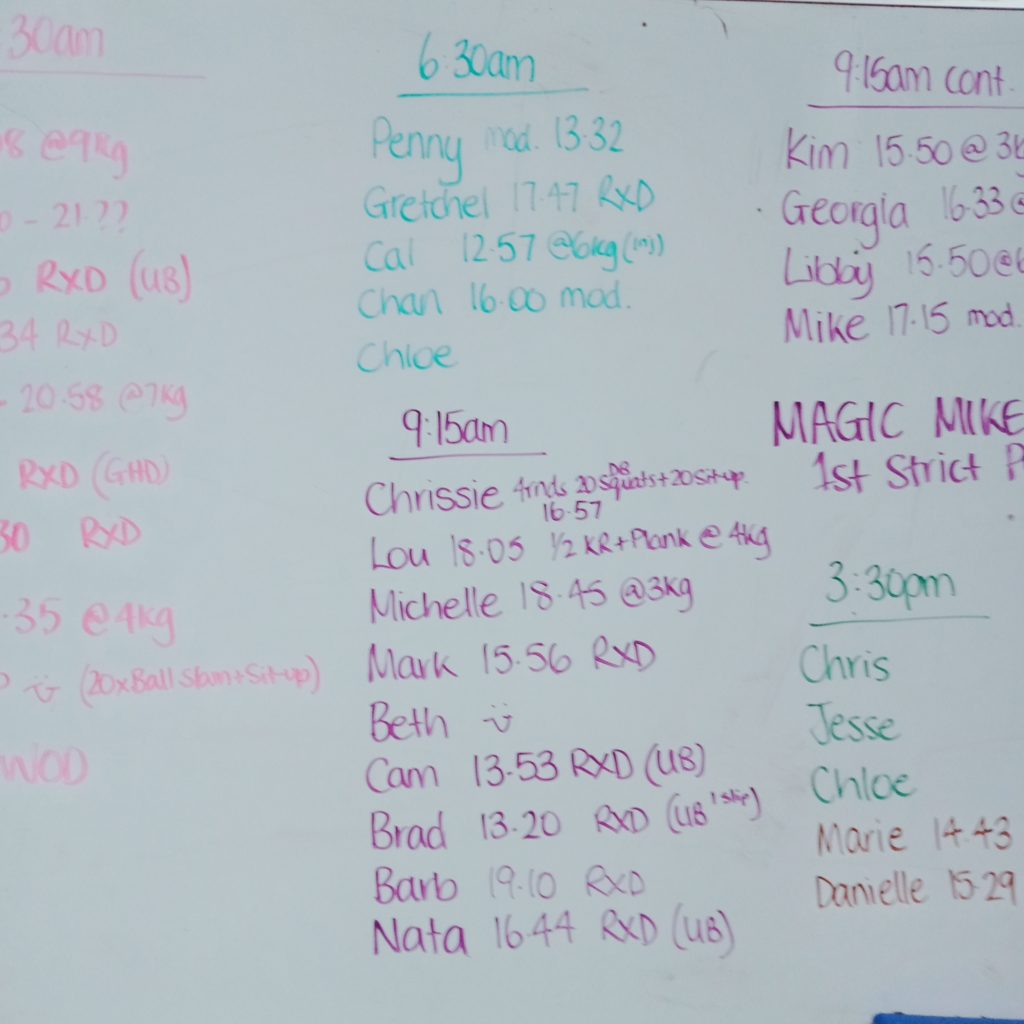 30am
8 @9kg
- 21.??
RXD (UB)
34 RXD
- 20.58 @7kg
RXD (GHD)
30 RXD
.35 @4kg
(20xBall Slam+Sit-up)
WOD
6.30am
Penny mod. 13.32
Gretchel 17.47 RXD
Cal 12.57 @6kg (inj)
Chan 16.00 mod.
Chloe
9:15am
Chrissie 4rnds 20 DB Squats+20 Sit-up.
16.57
Lou 18.05 1/2 KR+Plank @ 4kg
Michelle 18.45 @3kg
Mark 15.56 RXD
Beth
Cam 13.53 RXD (UB)
Brad 13.20 RXD (UB 1 step)
Barb 19.10 RXD
Nata 16.44 RXD (UB)
9:15am cont.
Kim 15.50 @ 3k
Georgia 16.33 @
Libby 15.50 @6
Mike 17.15 mod.
MAGIC MIKE
1st Strict P
3:30pm
Chris
Jesse
Chloe
Marie 14.43
Danielle 15.29